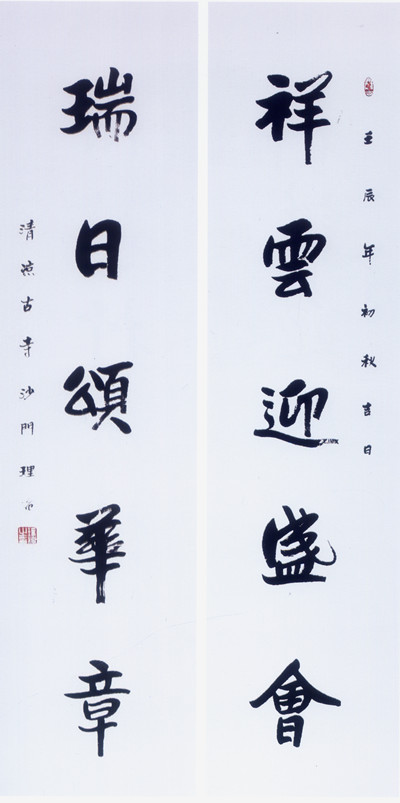 壬辰年初秋吉日
祥雲迎盛會
瑞日頌華章
清凉古寺沙門理